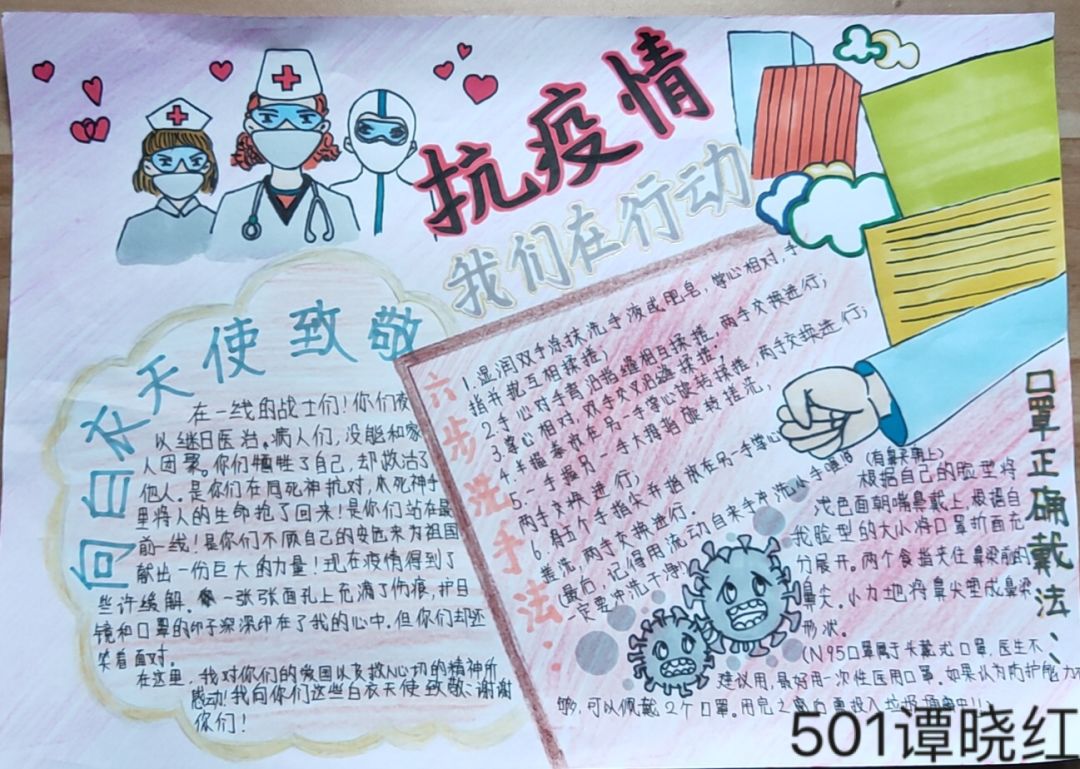 抗疫情
我们在行动
向白衣天使致敬
在一线的战士们！你们夜
以继日医治。病人们，没能和家
人团聚。你们牺牲了自己，却救治了
他人。是你们在同死神抗对，从死神手
里将人的生命抢了回来！是你们站在最
前一线！是你们不顾自己的安危来为祖国
献出一份巨大的力量！现在疫情得到了
些许缓解。一张张面孔上充满了伤痕，护目
镜和口罩的印子深深印在了我的心中。但你们却还
笑着面对。
在这里，我对你们的爱国以及救人心切的精神所
感动！我向你们这些白衣天使致敬：谢谢
你们！
六步洗手法：
1.湿润双手涂抹洗手液或肥皂，掌心相对，手
指并拢互相揉搓；
2.手心对手背沿指缝相互揉搓，两手交换进行；
3.掌心相对，双手交叉沿缝揉搓；
4.半握拳放在另一手掌心旋转揉搓，两手交换进行；
5.一手握另一手大拇指旋转搓洗，
两手交换进行；
6.将五个手指尖并拢放在另一手掌心
搓洗，两手交换进行。
(最后，记得用流动自来手冲洗
一定要冲洗干净)
口罩正确戴法：
(有鼻夹朝上)
根据自己的脸型将
浅色面朝嘴鼻戴上，根据自
我脸型的大小将口罩折面充
分展开。两个食指夹住鼻梁前的
鼻尖。小力地将鼻尖塑成鼻梁
形状。
(N95口罩属于头戴式口罩，医生不
建议用，最好用一次性医用口罩。如果认为防护能力不
够，可以佩戴2个口罩。用完之离
501谭晓红